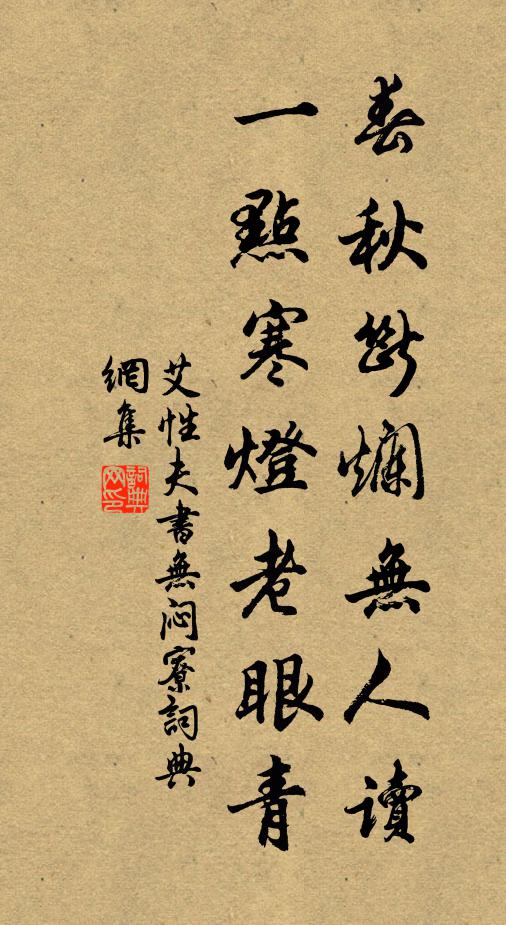 春秋斷爛無人讀
一點寒燈老眼青
艾性夫書無悶寮詞典
網集
詞典
网印